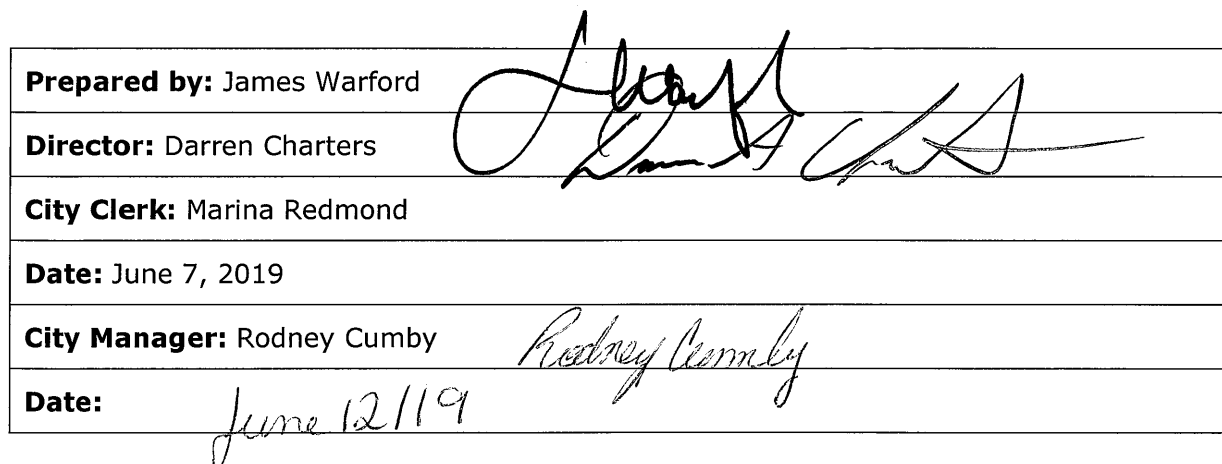 Prepared by: James Warford
Director: Darren Charters
City Clerk: Marina Redmond
Date: June 7, 2019
City Manager: Rodney Cumby Rodney Cumby
Date: June 12/19